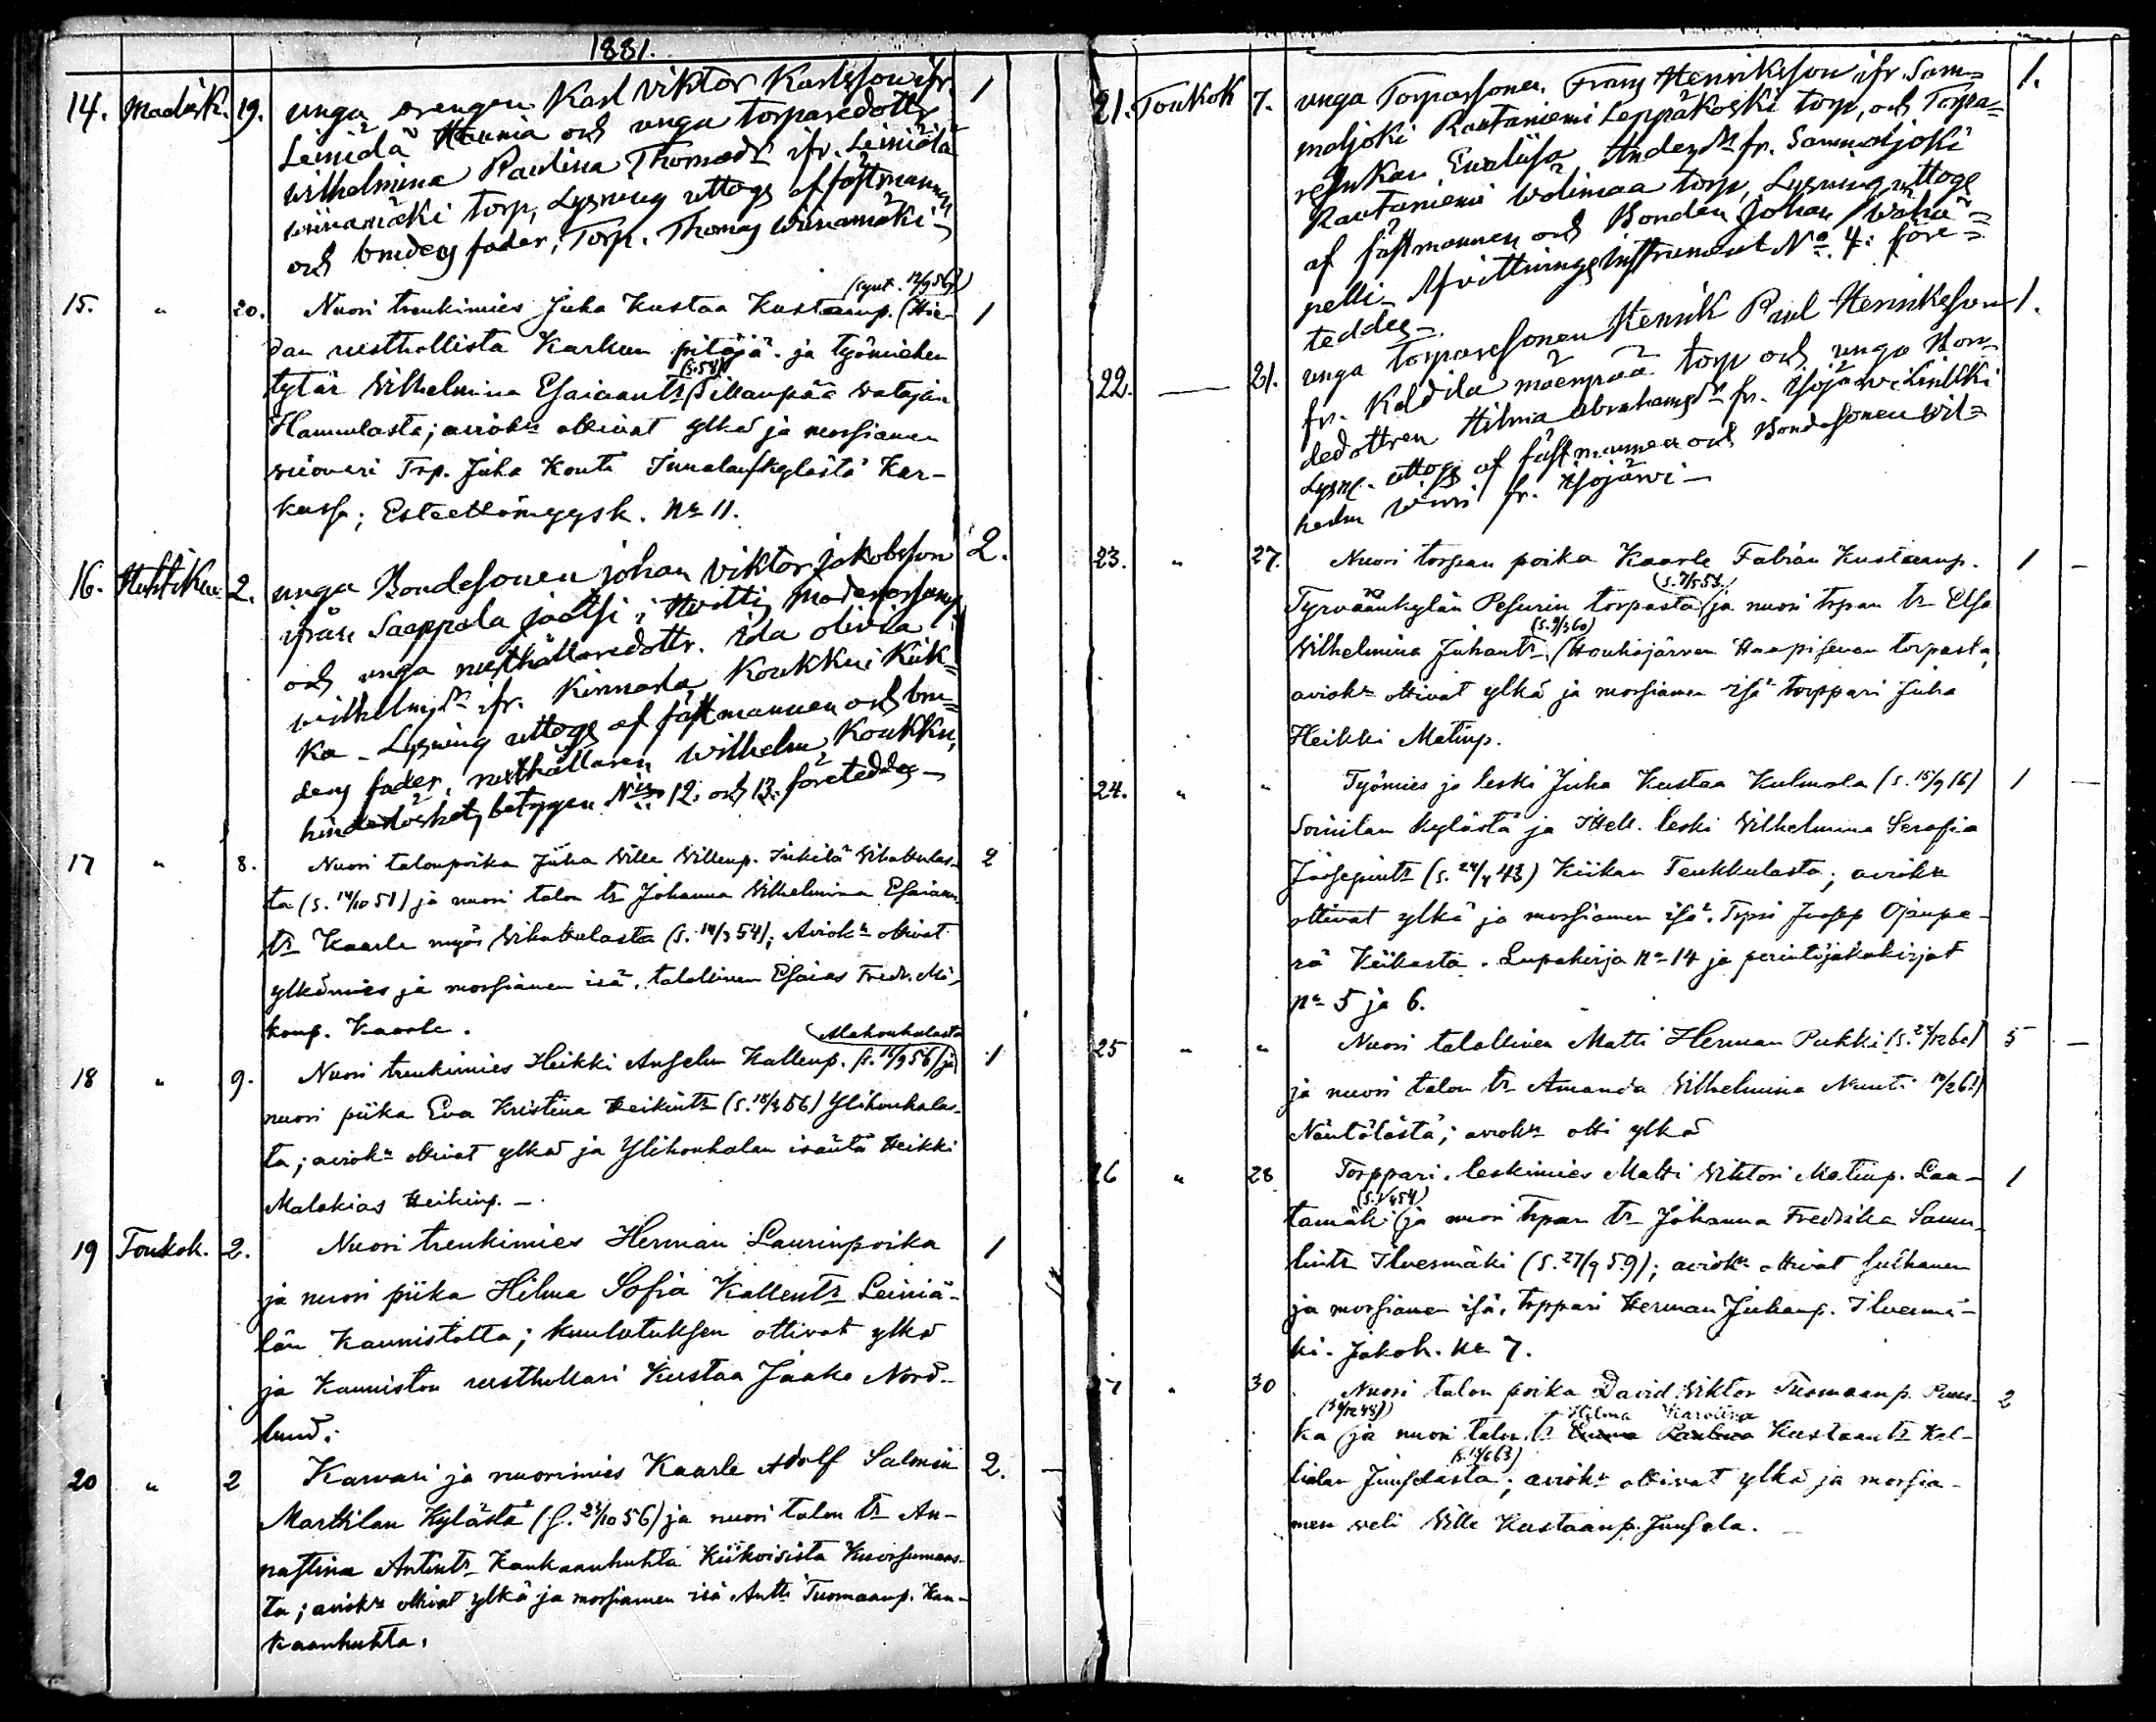 1881.
14. Maalisk. 19. unga drengen Karl Viktor Karlsson ifr. 1
Leiniälä Hannia och unga torparedottr
Wilhelmina Paulina Thomasdr ifr. Leiniälä
Wiinamäki torp, Lysning uttogs af fästmannen
och brudens fader, Torp. Thomas Wiinamäki
(synt. 12/9 56)
15. " 20. Nuori trenkimies Juha Kustaa Kustaanp. (Hie- 1
dan rusthollista Karkun pitäjä. ja työmiehen
(s. 58)
tytär Wilhelmina Esaiaantr Sillanpää Watajan
Hannulasta; aviokn ottivat ylkä ja morsiamen
Trp. Juha Konti Kar-
kussa; Esteettömyysk. No 11.
16. Huhtikuu 2. unga Bondesonen Johan Viktor Jakobsson 2.
ifrån Saappala Jaatsi i Hvittis Moderförsaml.
och unga rusthållaredottr. Ida Olivia
Wilhelmsdr ifr. Kinnala Koukku i Kiik-
ka - Lysning uttogs af fästmannen och bru-
dens fader, rusthållaren Wilhelm Koukku,
hinderlöshets betygen Nis 12. och 13. företeddes -
17 " 8. Nuori talonpoika Juha Wille Willenp. Inkilä Wihattulas- 2
ta (s. 14/10 51) ja nuori talon tr Johanna Wilhelmina Esaiaan-
tr Kaarle myös Wihattulasta (s. 14/3 54); Aviokn ottivat
ylkämies ja morsiamen isä, talollinen Esaias Fredr. Mi-
konp. Kaarle.
Alahouhalasta
18 " 9. Nuori trenkimies Heikki Anselm Kallenp. (s. 16/9 56) ja 1
nuori piika Eva Kristina Heikintr (s. 18/3 56) Ylihouhalas-
ta; aviokn ottivat ylkä ja Ylihouhalan isäntä Heikki
Malakias Heikinp. -
19 Toukok. 2. Nuori trenkimies Herman Laurinpoika 1
ja nuori piika Hilma Sofia Kallentr Leiniä-
län Kaunistolta; kuulutuksen ottivat ylkä
ja Kauniston rusthollari Kustaa Jaako Nord-
lund.
20 " 2 Karvari ja nuorimies Kaarle Adolf Salmin 2.
Marttilan Kylästä (s. 23/10 56) ja nuori talon tr An-
nastina Antintr Kankaanhuhta Kiikoisista Kuorsumaas-
ta; aviokn ottivat ylkä ja morsiamen isä Antti Tuomaanp. Kan-
kaanhuhta.
21. Toukok 7. unga Torparsonen Frans Henriksson ifr. Sam- 1.
maljoki Rautaniemi Leppäkoski torp, och Torpa-
Evaliisa Andersdr fr. Sammaljoki
Rautaniemi Wolimaa torp, Lysning uttogs
af fästmannen och Bonden Johan Wähä-
pelli - Afvittrings Instrument No 4: före-
teddes -
22. — 21. unga torparesonen Henrik Paul Henriksson 1.
fr. Kaldila Mäenpää torp och unga Bon-
dedottren Hilma Abrahamsdr fr. Isojärvi
Lysn. uttogs af fästmannen och Bondesonen Wil-
helm fr. Isojärvi -
23. " 27. Nuori torpan poika Kaarle Fabian Kustaanp. 1
(s. 7/5 53.)
Tyrväänkylän Pesurin torpasta (ja nuori trpan tr Elsa
(s. 9/3 60)
Wilhelmina Juhantr. (Houhajärven Haapisevan torpasta,
aviokn ottivat ylkä ja morsiamen isä torppari Juha
Heikki Matinp.
24. " " Työmies ja leski Juha Kustaa Kulmala (s. 15/9 16) 1
Soinilan kylästä ja leski Wilhelmina Serafia
Joosepintr (s. 24/4 43) Kiikan Teukkulasta; aviokn
ottivat ylkä ja morsiamen isä. Trpri Joosep Ojanpe-
rä Kiikasta. Lupakirja no 14 ja perintöjakokirjat
no 5 ja 6.
25 " " Nuori talollinen Matti Herman Pukki (s. 28/12 60) 5
ja nuori talon tr Amanda Wilhelmina Nuuti 10/2 61)
Näntölästä; aviokn otti ylkä
26 " 28 Torppari, leskimies Matti Wiktori Matinp. Lau- 1
tamäki (ja nuori trpan tr Johanna Fredrika Samu-
lintr Ilvesmäki (s. 27/9 59); aviokn ottivat sulhanen
ja morsiamen isä, torppari Herman Juhanp. Ilvesmä-
ki. Jakok. No 7.
27 " 30 Nuori talon poika David Wiktor Tuomaanp. Puus- 2
Hilma Karolina
ka (ja nuori talon tr Emma Paulina Kustaantr Kal-
lialan Juusolasta; aviokn ottivat ylkä ja morsia-
men veli Wille Kustaanp. Juusola.